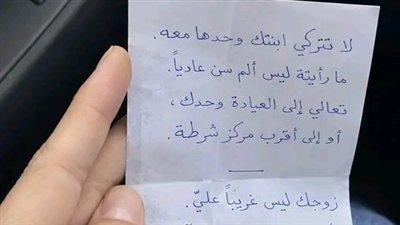 لا تتركي ابنتك وحدها معه.
ما رأيتة ليس ألم سن عادياً.
تعالي إلى العيادة وحدك،
أو إلى أقرب مركز شرطة.
زوجك ليس غريباً عليّ.